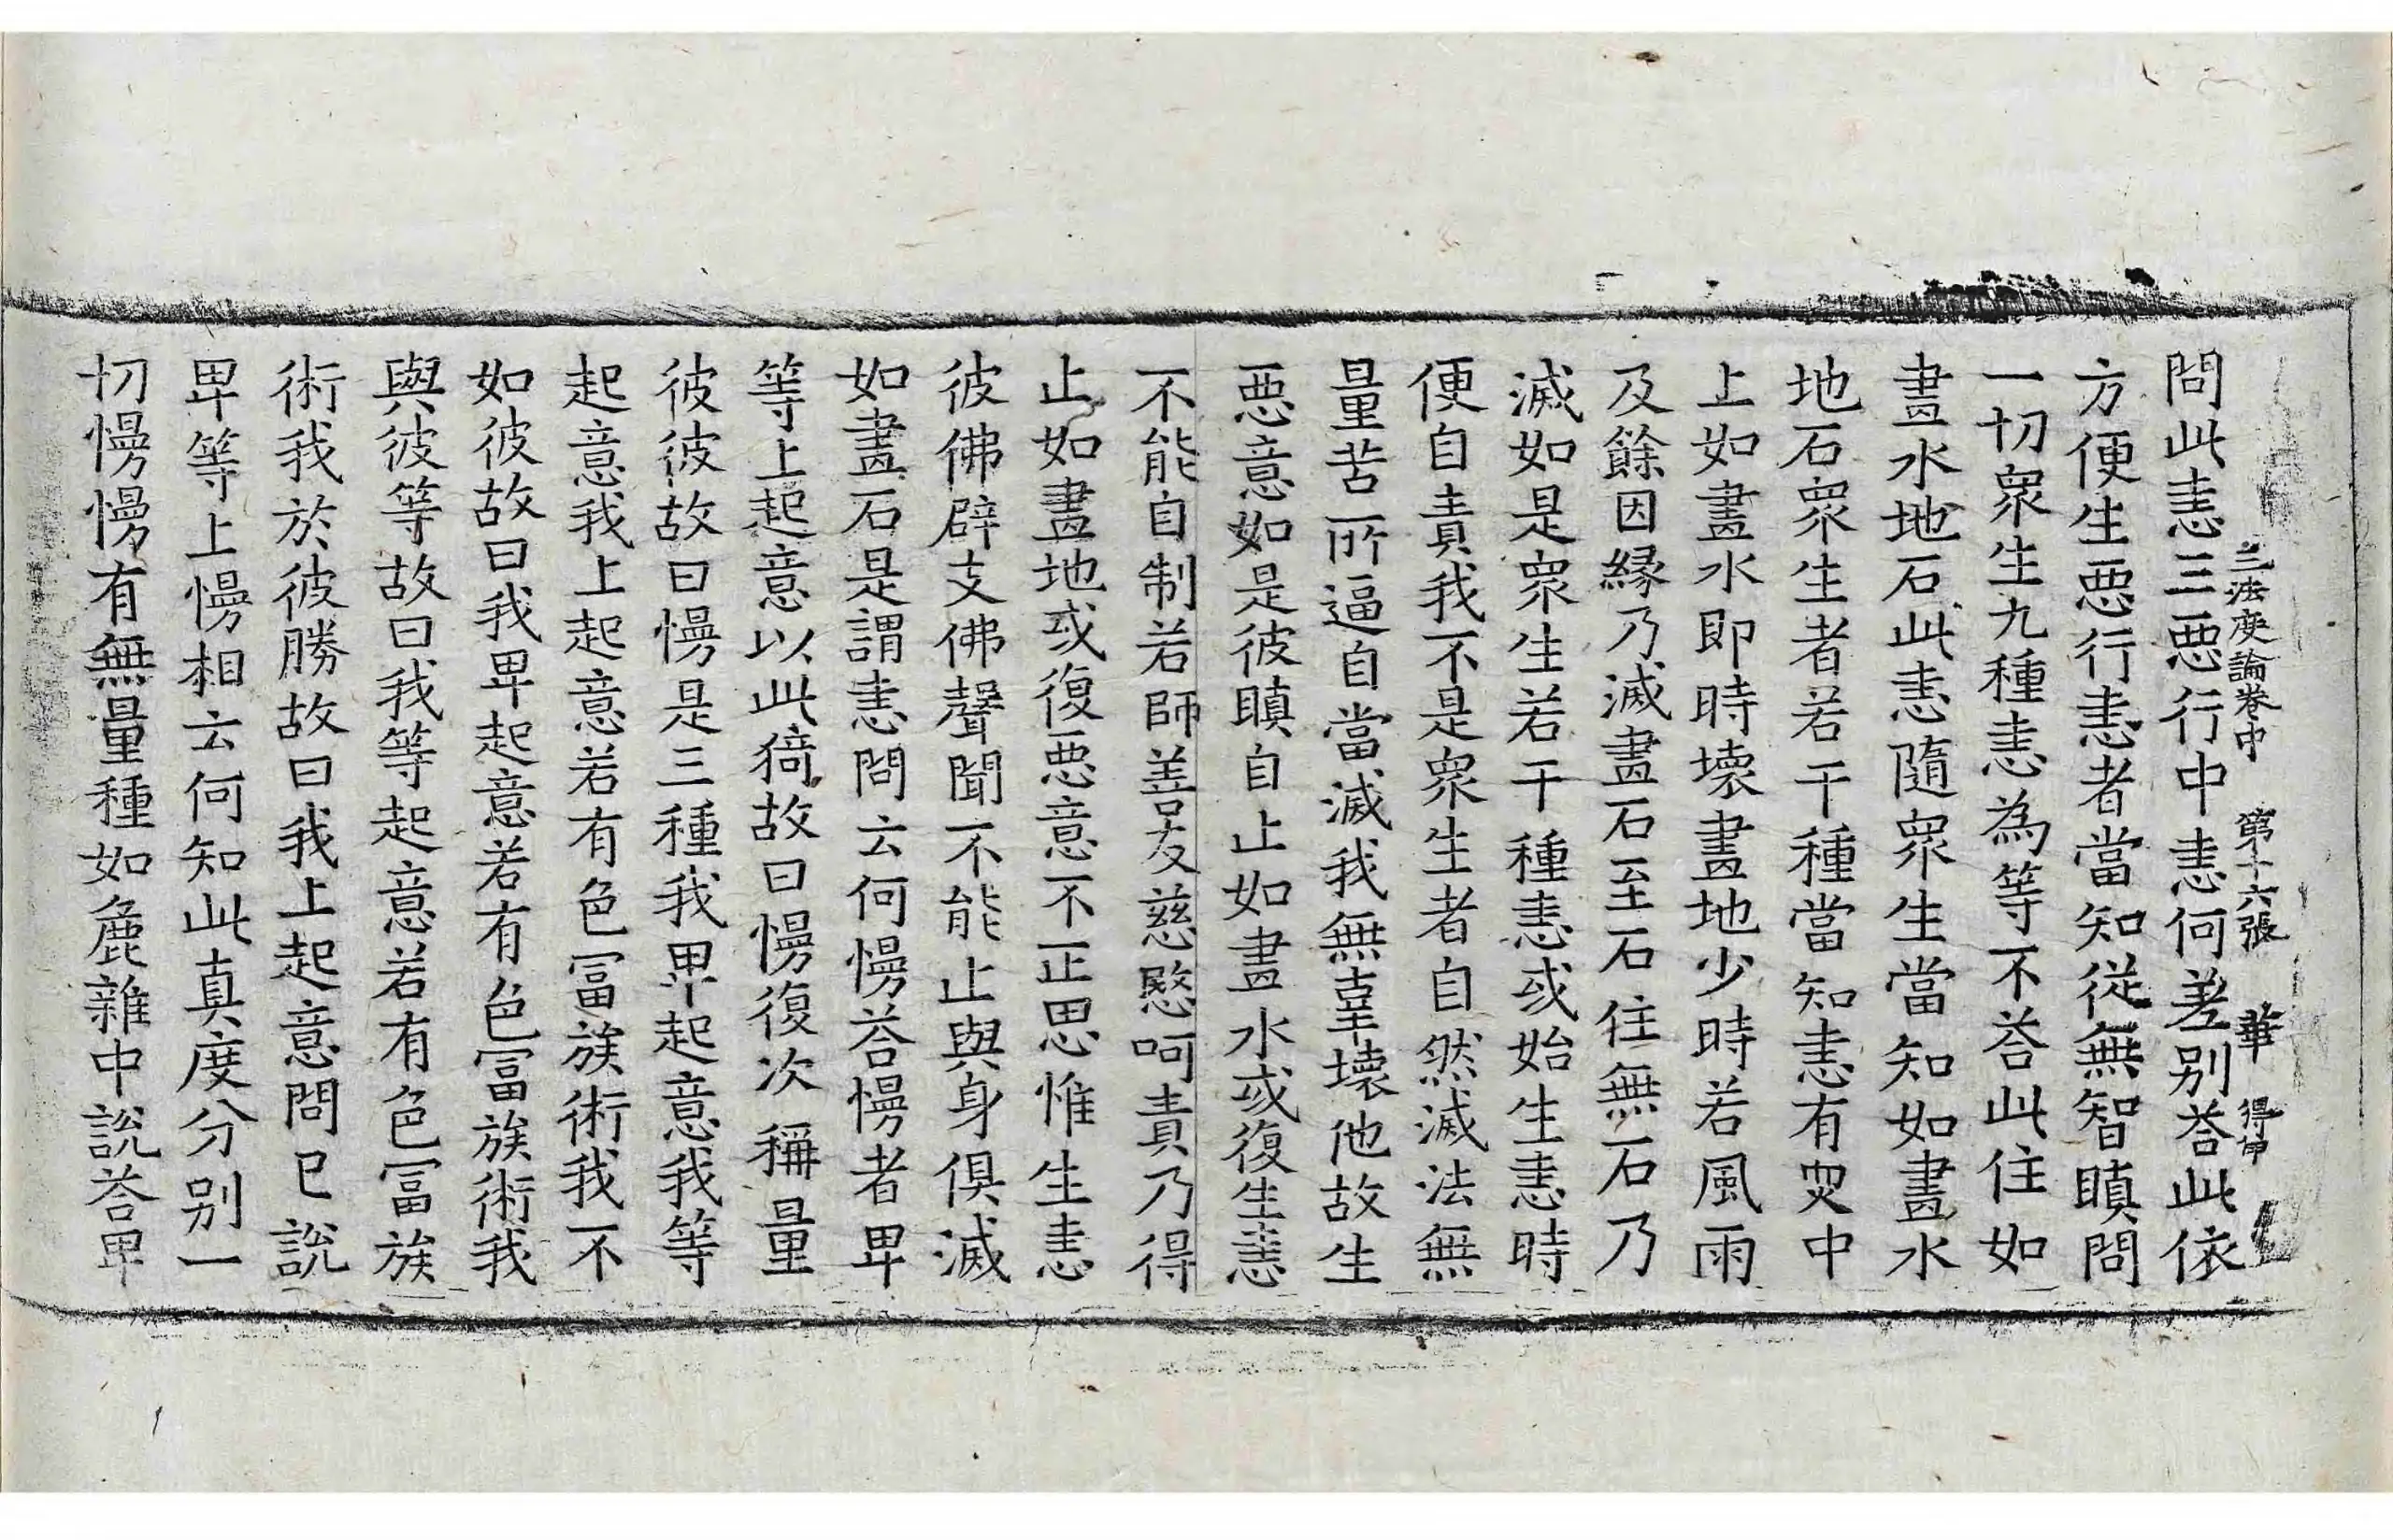 三法度論卷中　第十六張　華　得申
問此恚三惡行中恚何差別荅此依
方便生惡行恚者當知從無智瞋問
一切衆生九種恚為等不荅此住如
畫水地石此恚隨衆生當知如畫水
地石衆生者若干種當知恚有耎中
上如畫水即時壞畫地少時若風雨
及餘因緣乃滅畫石至石住無石乃
滅如是衆生若干種恚或始生恚時
便自責我不是衆生者自然滅法無
量苦所逼自當滅我無辜壞他故生
惡意如是彼瞋自止如畫水或復生恚
不能自制若師善友慈愍呵責乃得
止如畫地或復惡意不正思惟生恚
彼佛辟支佛聲聞不能止與身俱滅
如畫石是謂恚問云何慢荅慢者卑
等上起意以此猗故曰慢復次稱量
彼彼故曰慢是三種我卑起意我等
起意我上起意若有色冨族術我不
如彼故曰我卑起意若有色冨族術我
與彼等故曰我等起意若有色冨族
術我於彼勝故曰我上起意問已說
卑等上慢相云何知此真度分別一
切慢慢有無量種如麁雜中說荅卑